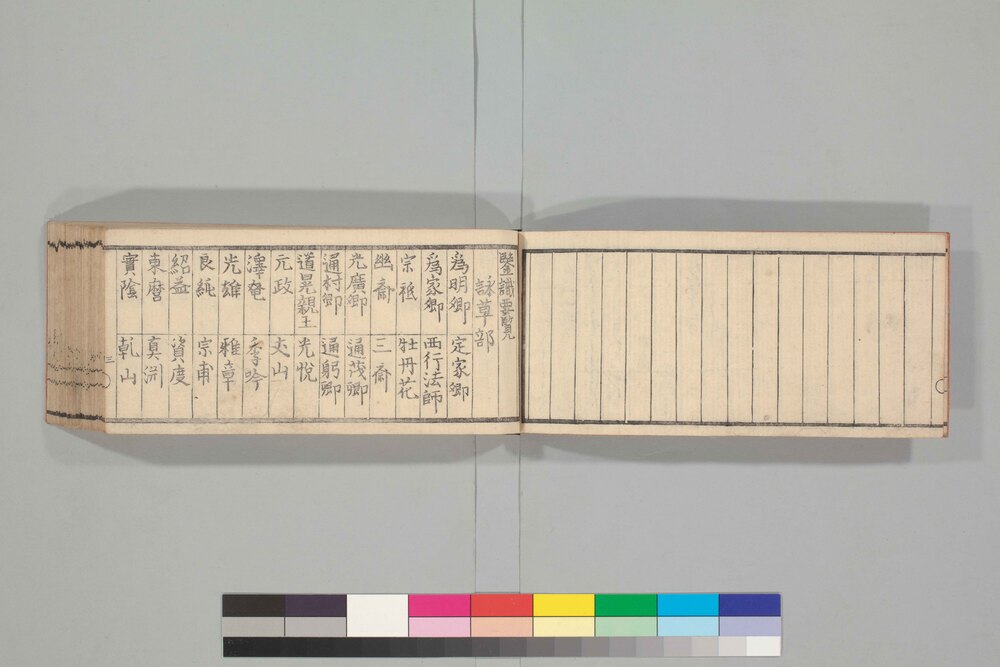 鑒識要覽
詠草部
爲明卿 定家卿
爲家卿 西行法師
宗祇 牡丹花
幽齋 三齋
光廣卿 通茂卿
通村卿 通躬卿
道晃親王 光悅
元政 夫山
澤菴 季吟
光雄 雅章
良純 宗甫
紹益 資慶
東麿 真淵
實陰 乾山
三